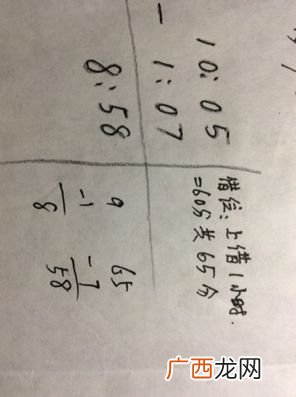 10:05
- 1:07
8:58
借位:上借1小时.
=60分共65分
9
-1
8
65
-7
58
广西龙网